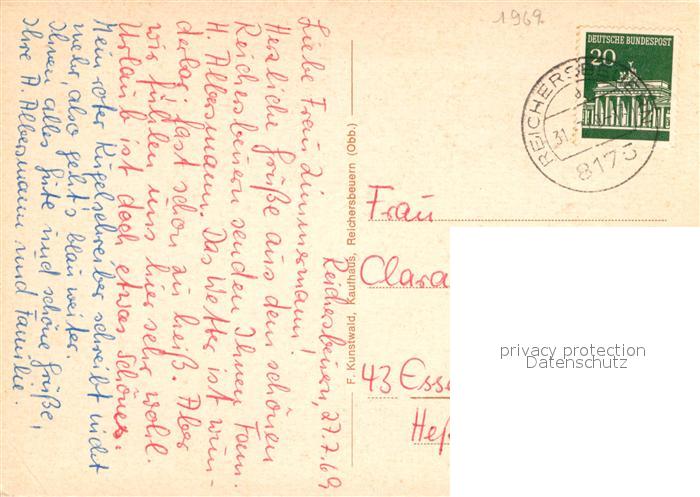 1969
DEUTSCHE BUNDESPOST
20
REICHERSBE
31.
8173
Reichersbeuern, 27.7.69
Liebe Frau Zimmermann!
Herzliche Grüße aus dem schönen
Reichersbeuern senden Ihnen Fam.
H. Albersmann. Das Wetter ist wun-
derbar, fast schon zu heiß. Aber
wir fühlen uns hier sehr wohl.
Urlaub ist doch etwas Schönes.
Mein roter Kugelschreiber schreibt nicht
mehr, also geht's blau weiter.
Ihnen alles Gute und schöne Grüße,
Ihre A. Albersmann und Familie.
F. Kunstwald, Kaufhaus, Reichersbeuern (Obb.)
Frau
Clara
43 Esse
Heß
privacy protection
Datenschutz